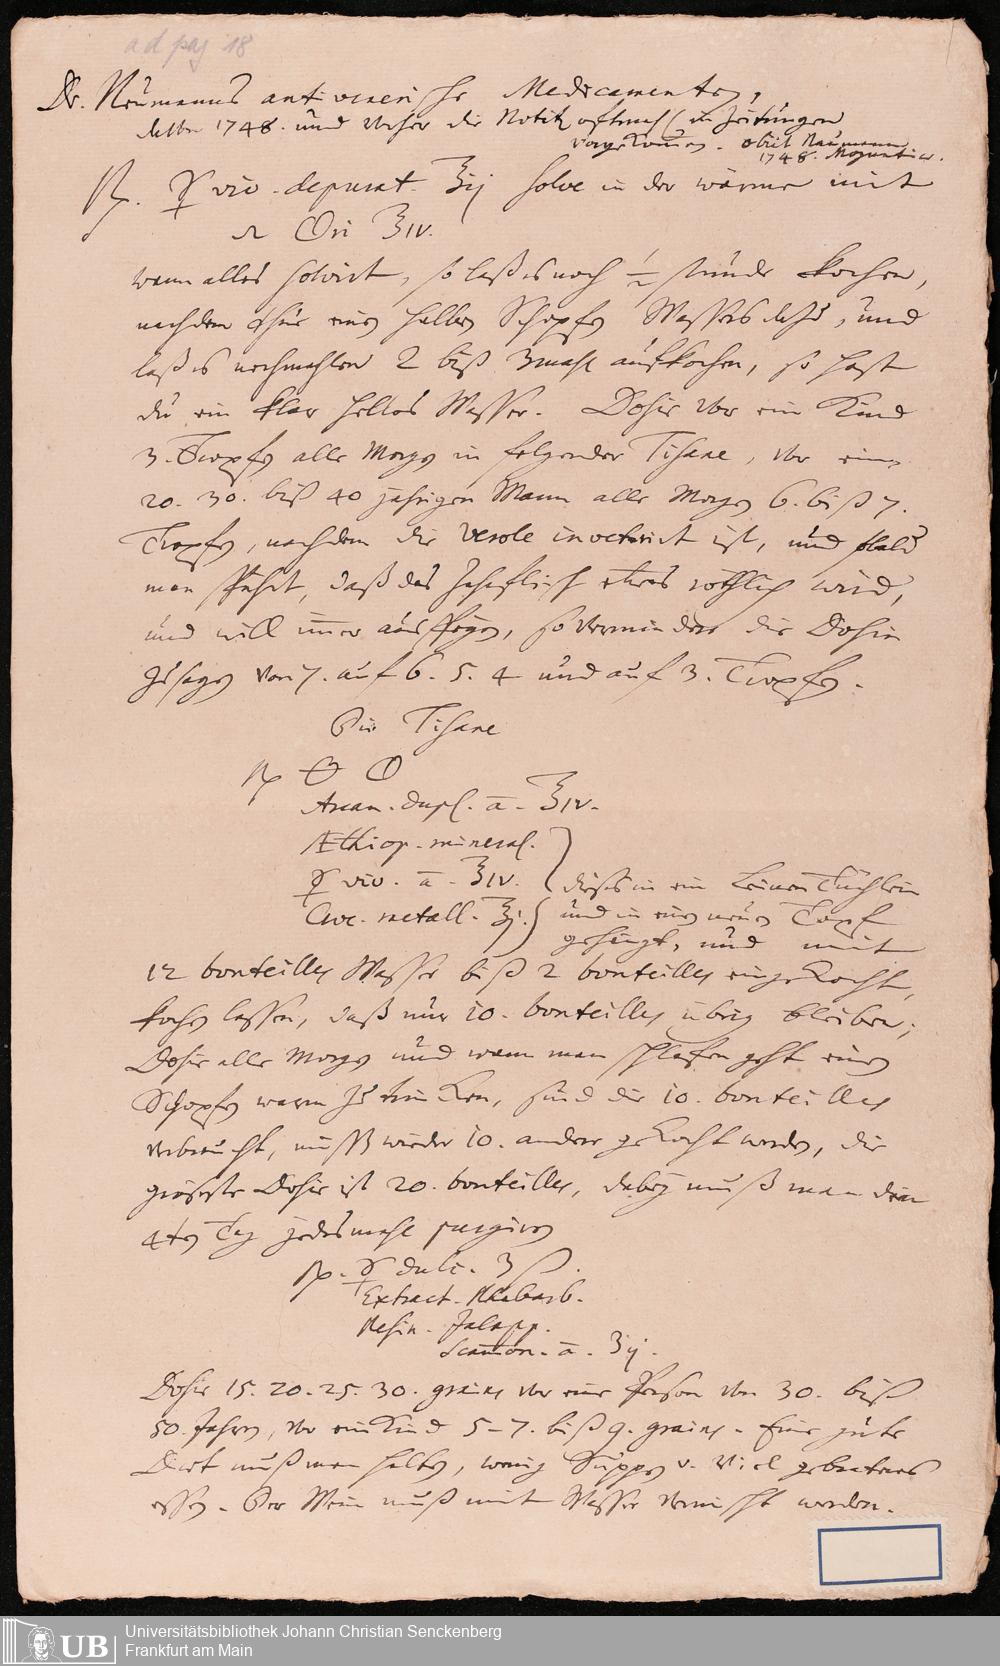 ad pag 18
Dr. Neumanns antivenerische Medicamenten,
1748. und die Notitz oftmahls in Zeitungen
vorgekommen. obiit Naumann
1748. Moguntiae.
℞. ☿ viv. depurat. ℥ij solve in der wärme mit
Ɽ ℥IV.
wann alles solvirt, so laß es noch ½ stunde kochen,
nachdem thue einen halben Schopfen Wassers dazu, und
laß es nochmahlen 2 biß 3mahl aufkochen, so hast
du ein klar helles Wasser. Dosis vor ein Kind
3. Tropfen alle Morgen in folgender Tisane, vor einen
20. 30. biß 40 jährigen Mann alle Morgen 6. biß 7.
Tropfen, nachdem die Verole inveterirt ist, und sobald
man spührt, daß das Zahnfleisch etwas röthlich wird,
und will, so vermindere die Dosin
zu sagen von 7. auf 6. 5. 4 und auf 3. Tropfen.
Die Tisane
℞
Arcan. dupl. ā. ℥IV.
Æthiop. mineral.
☿ viv. ā. ℥IV. dießes in ein Leinen Tüchlein
Croc. metall. ℥j. und in einen neuen Topf
gehengt, und mit
12 bouteillen Wasser biß 2 bouteillen eingekocht,
kochen lassen, daß nur 10. bouteillen übrig bleiben;
Dosis alle Morgen und wann man schlafen geht einen
Schopfen warm zu trincken, sind die 10. bouteillen
verbraucht, müssen wieder 10. andere gekocht werden, die
gröseste Dosis ist 20. bouteillen, dabey muß man den
4ten Tag jedesmahl purgiren
℞. ☿ dulc. ʒß.
Extract. Rhabarb.
Resin. Jalapp.
Scammon. ā. ʒij.
Dosis 15. 20. 25. 30. grains vor eine Person von 30. biß
50. Jahren, vor ein Kind 5-7. biß 9. grains. Eine gute
Diaet muß man halten, wenig Suppen v. viel gebratenes
essen. Der Wein muß mit Wasser vermischt werden.
UB Universitätsbibliothek Johann Christian Senckenberg
Frankfurt am Main